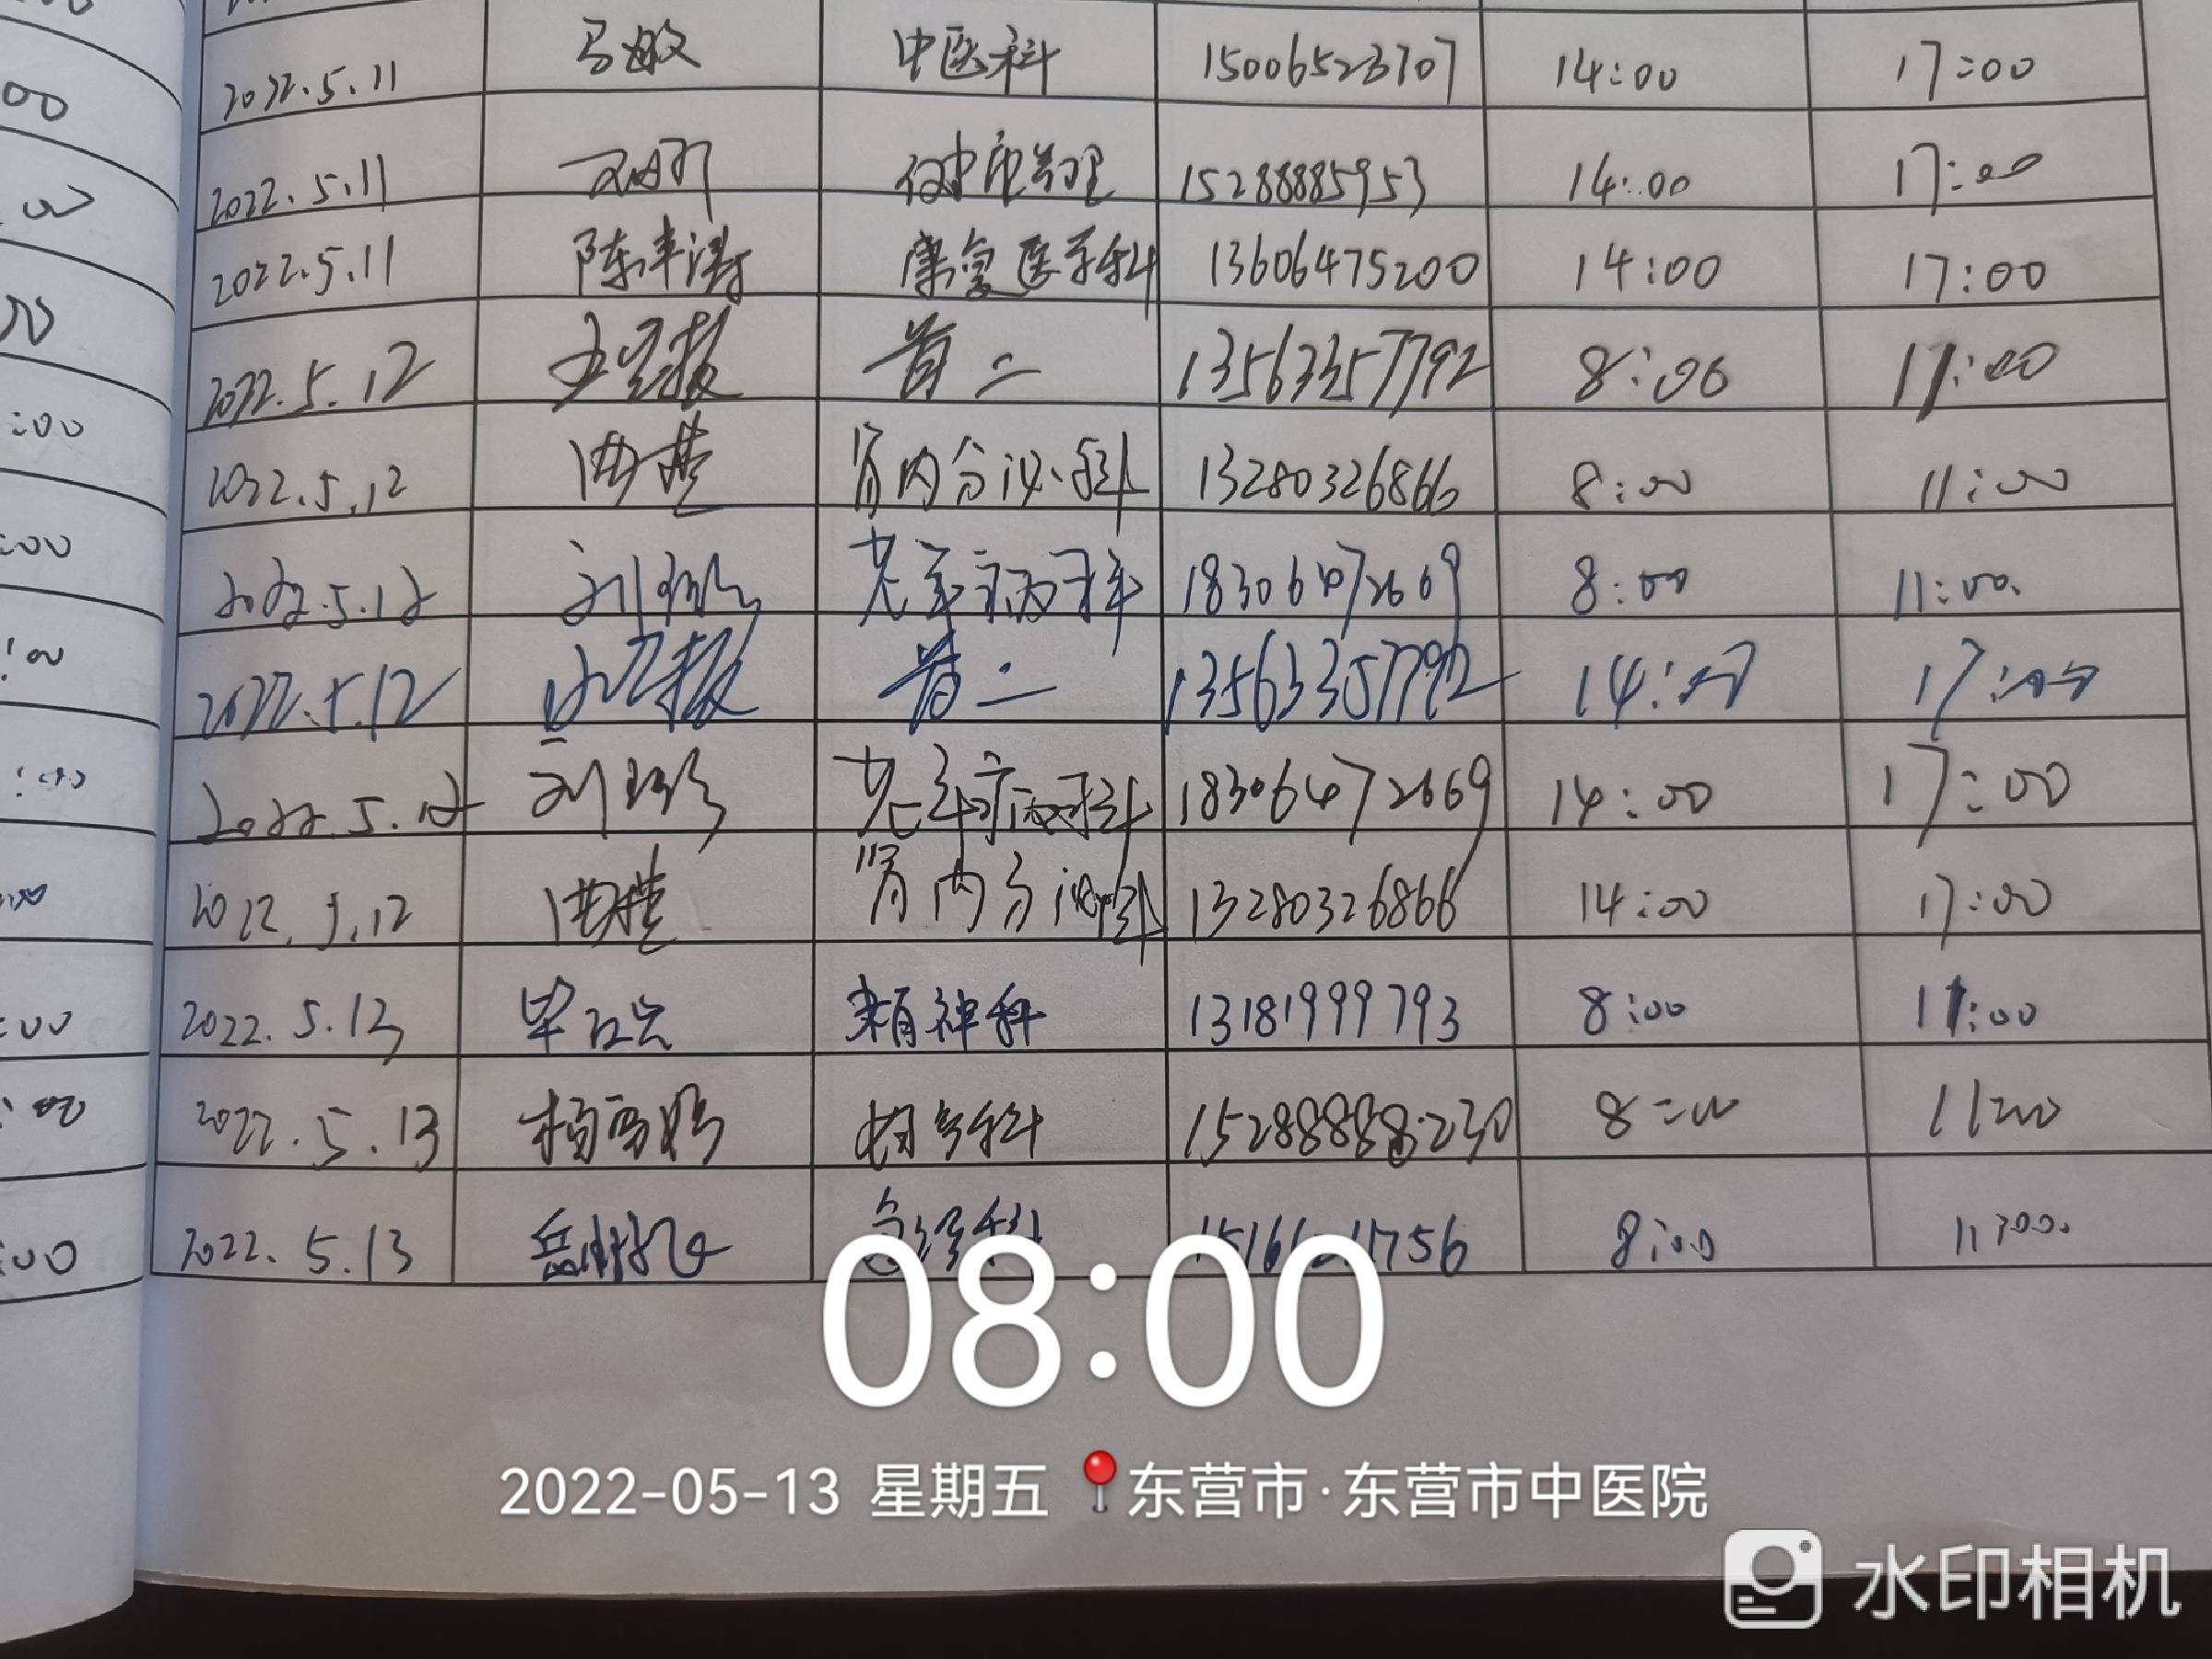 2022.5.11 马敏 中医科 15006523707 14:00 17:00
2022.5.11 健康管理 15288885953 14:00 17:00
2022.5.11 陈丰涛 康复医学科 13606475200 14:00 17:00
2022.5.12 骨二 13563357792 8:00 11:00
2022.5.12 曲楚 肾内分泌科 13280326866 8:00 11:00
2022.5.12 刘 老年病科 18306472669 8:00 11:00.
2022.5.12 骨二 13563357792 14:00 17:00
2022.5.12 刘 老年病科 18306472669 14:00 17:00
2022.5.12 曲楚 肾内分泌科 13280326866 14:00 17:00
2022.5.13 毕 精神科 13181999793 8:00 11:00
2022.5.13 杨 科 15288888230 8:00 11:00
2022.5.13 岳 8:00 11:00
08:00
2022-05-13 星期五 东营市·东营市中医院
水印相机